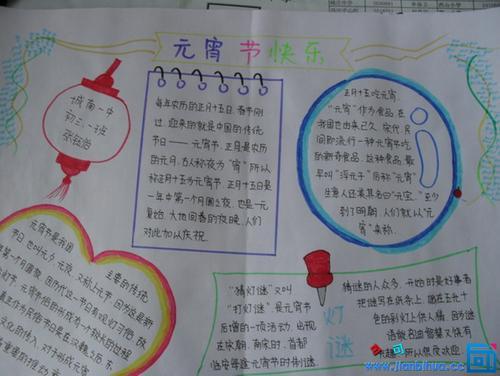 元宵节快乐
城南一中
初三一班
每年农历的正月十五日，春节刚
过，迎来的就是中国的传统
节日——元宵节。正月是农历
的元月，古人称夜为“宵”所以
称正月十五为元宵节。正月十五日是
一年中第一个月圆之夜，也是一元
复始，大地回春的夜晚，人们
对此加以庆祝。
正月十五吃元宵，
“元宵”作为食品，在
我国也由来已久。宋代，民
间即流行一种元宵节吃
的新奇食品。这种食品，最
早叫“浮元子”后称“元宵”
生意人还美其名曰“元宝”。至少
到了明朝，人们就以“元
宵”来称
元宵节是我国
主要的传统
“猜灯谜”又叫
“打灯谜”是元宵节
后增的一项活动，出现
在宋朝。南宋时，首都
临安每逢元宵节时制谜，
灯谜
猜谜的人众多。开始时是好事者
把谜写在纸条上，贴在五光十
色的彩灯上供人猜。因为谜
语能启迪智慧又饶有
www.jianbihua.cc